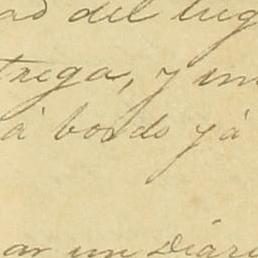 ad del lug
trega, y un
á bordo y á
ar un Diari